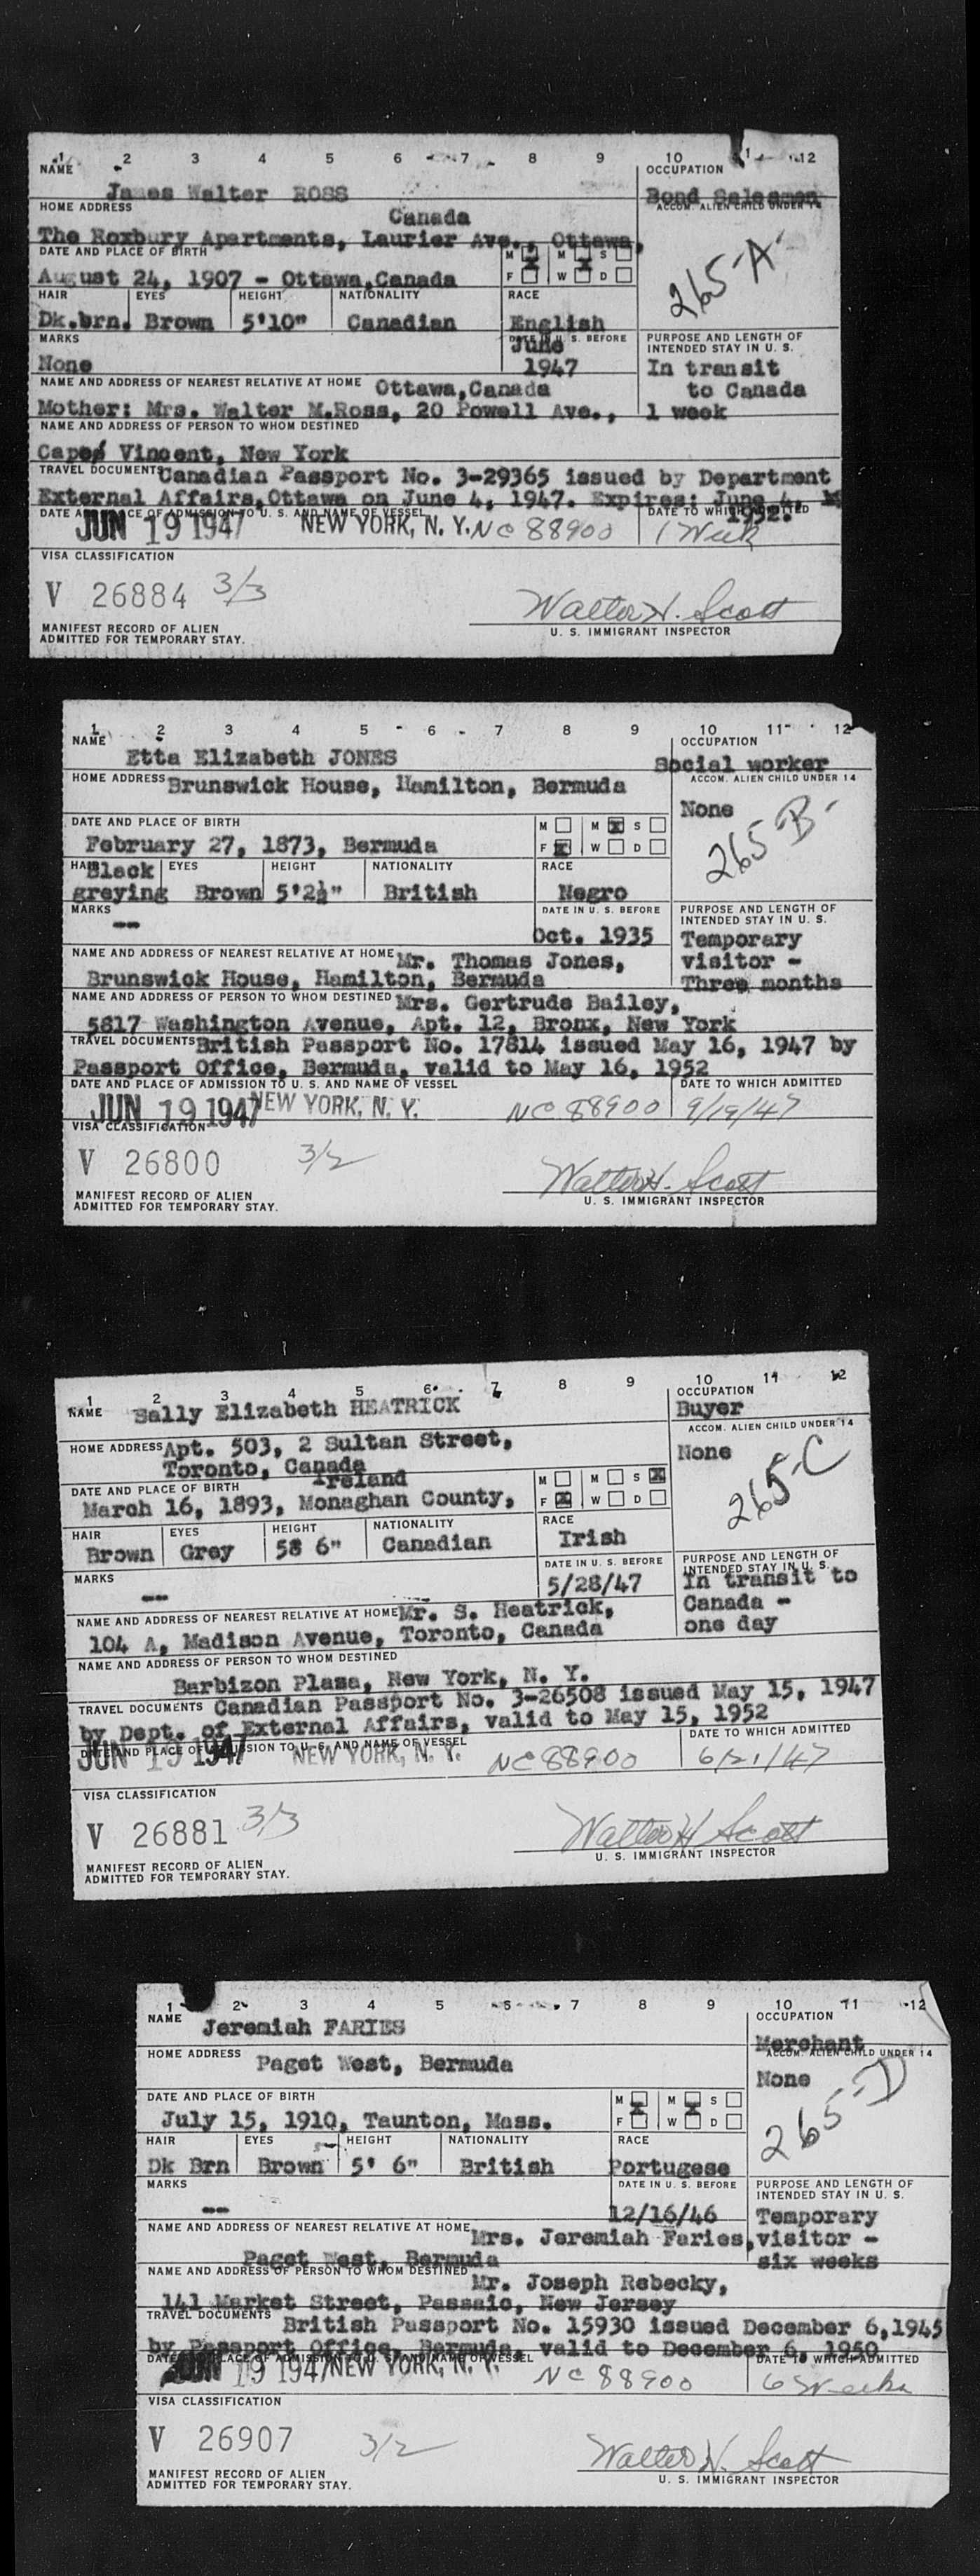 1 2 3 4 5 6 7 8 9 10 1 12
NAME OCCUPATION
James Walter ROSS Bond Salesman
HOME ADDRESS Canada ACCOM. ALIEN CHILD UNDER 14
The Roxbury Apartments, Laurier Ave., Ottawa,
DATE AND PLACE OF BIRTH M X M X S
August 24, 1907 - Ottawa,Canada F W D
265-A
HAIR EYES HEIGHT NATIONALITY RACE
Dk.brn. Brown 5'10" Canadian English
MARKS DATE IN U. S. BEFORE PURPOSE AND LENGTH OF
June INTENDED STAY IN U. S.
None 1947 In transit
NAME AND ADDRESS OF NEAREST RELATIVE AT HOME Ottawa,Canada to Canada
Mother: Mrs. Walter M.Ross, 20 Powell Ave., 1 week
NAME AND ADDRESS OF PERSON TO WHOM DESTINED
Cape Vincent, New York
TRAVEL DOCUMENTS Canadian Passport No. 3-29365 issued by Department
External Affairs,Ottawa on June 4, 1947. Expires: June 4,
1952.
DATE A CE OF ADMISSION TO U. S. AND NAME OF VESSEL DATE TO WHICH ADMITTED
JUN 19 1947 NEW YORK, N. Y. NC 88900 1 Week
VISA CLASSIFICATION
V 26884 3/3 Walter H. Scott
MANIFEST RECORD OF ALIEN U. S. IMMIGRANT INSPECTOR
ADMITTED FOR TEMPORARY STAY.
1 2 3 4 5 6 7 8 9 10 11 12
NAME OCCUPATION
Etta Elizabeth JONES Social worker
HOME ADDRESS Brunswick House, Hamilton, Bermuda ACCOM. ALIEN CHILD UNDER 14
None
DATE AND PLACE OF BIRTH M M X S
February 27, 1873, Bermuda F X W D
265-B-
HAIR Black EYES HEIGHT NATIONALITY RACE
greying Brown 5'2½" British Negro
MARKS DATE IN U. S. BEFORE PURPOSE AND LENGTH OF
INTENDED STAY IN U. S.
-- Oct. 1935 Temporary
NAME AND ADDRESS OF NEAREST RELATIVE AT HOME Mr. Thomas Jones, visitor -
Brunswick House, Hamilton, Bermuda Three months
NAME AND ADDRESS OF PERSON TO WHOM DESTINED Mrs. Gertrude Bailey,
5817 Washington Avenue, Apt. 12, Bronx, New York
TRAVEL DOCUMENTS British Passport No. 17814 issued May 16, 1947 by
Passport Office, Bermuda, valid to May 16, 1952
DATE AND PLACE OF ADMISSION TO U. S. AND NAME OF VESSEL DATE TO WHICH ADMITTED
JUN 19 1947 NEW YORK, N. Y. NC 88900 9/19/47
VISA CLASSIFICATION
V 26800 3/2 Walter H. Scott
MANIFEST RECORD OF ALIEN U. S. IMMIGRANT INSPECTOR
ADMITTED FOR TEMPORARY STAY.
1 2 3 4 5 6 7 8 9 10 11 12
NAME OCCUPATION
Sally Elizabeth HEATRICK Buyer
HOME ADDRESS Apt. 503, 2 Sultan Street, ACCOM. ALIEN CHILD UNDER 14
Toronto, Canada None
DATE AND PLACE OF BIRTH Ireland M M S X
March 16, 1893, Monaghan County, F X W D
265-C
HAIR EYES HEIGHT NATIONALITY RACE
Brown Grey 58 6" Canadian Irish
MARKS DATE IN U. S. BEFORE PURPOSE AND LENGTH OF
INTENDED STAY IN U. S.
-- 5/28/47 In transit to
NAME AND ADDRESS OF NEAREST RELATIVE AT HOME Mr. S. Heatrick, Canada -
104 A, Madison Avenue, Toronto, Canada one day
NAME AND ADDRESS OF PERSON TO WHOM DESTINED
Barbizon Plaza, New York, N. Y.
TRAVEL DOCUMENTS Canadian Passport No. 3-26508 issued May 15, 1947
by Dept. of External Affairs, valid to May 15, 1952
DATE AND PLACE OF ADMISSION TO U. S. AND NAME OF VESSEL DATE TO WHICH ADMITTED
JUN 19 1947 NEW YORK, N. Y. NC 88900 6/21/47
VISA CLASSIFICATION
V 26881 3/3 Walter H Scott
MANIFEST RECORD OF ALIEN U. S. IMMIGRANT INSPECTOR
ADMITTED FOR TEMPORARY STAY.
1 2 3 4 5 6 7 8 9 10 11 12
NAME OCCUPATION
Jeremiah FARIES Merchant
HOME ADDRESS Paget West, Bermuda ACCOM. ALIEN CHILD UNDER 14
None
DATE AND PLACE OF BIRTH M X M X S
July 15, 1910, Taunton, Mass. F W D
265-D
HAIR EYES HEIGHT NATIONALITY RACE
Dk Brn Brown 5' 6" British Portugese
MARKS DATE IN U. S. BEFORE PURPOSE AND LENGTH OF
INTENDED STAY IN U. S.
-- 12/16/46 Temporary
NAME AND ADDRESS OF NEAREST RELATIVE AT HOME Mrs. Jeremiah Faries, visitor -
Paget West, Bermuda six weeks
NAME AND ADDRESS OF PERSON TO WHOM DESTINED Mr. Joseph Rebecky,
141 Market Street, Passaic, New Jersey
TRAVEL DOCUMENTS British Passport No. 15930 issued December 6,1945
by Passport Office, Bermuda, valid to December 6, 1950
DATE AND PLACE OF ADMISSION TO U. S. AND NAME OF VESSEL DATE TO WHICH ADMITTED
JUN 19 1947 NEW YORK, N. Y. NC 88900 6 Weeks
VISA CLASSIFICATION
V 26907 3/2 Walter H. Scott
MANIFEST RECORD OF ALIEN U. S. IMMIGRANT INSPECTOR
ADMITTED FOR TEMPORARY STAY.